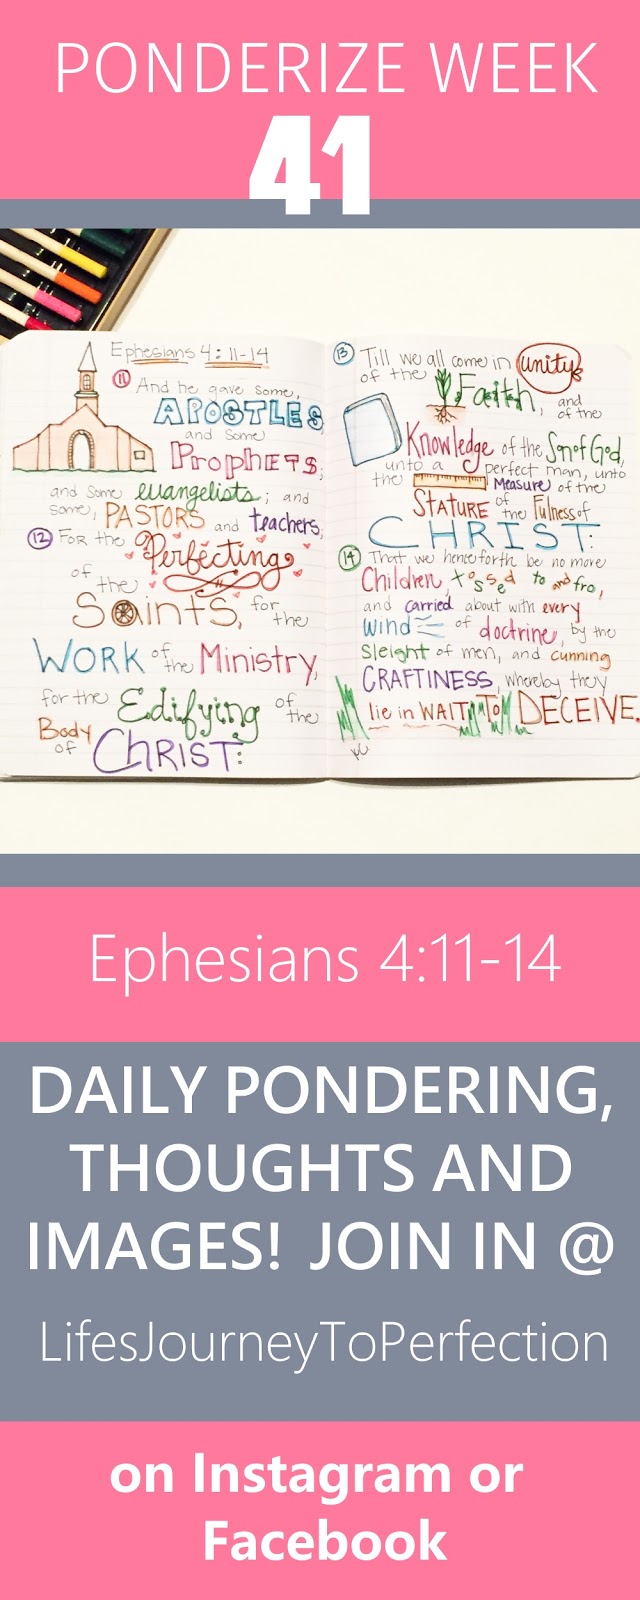 PONDERIZE WEEK
41
Ephesians 4:11-14
11 And he gave some,
APOSTLES
and some
PROPHETS;
and some evangelists; and
some, PASTORS and teachers;
12 FOR the Perfecting
of the
Saints, for the
WORK of the Ministry,
for the Edifying of the
Body of CHRIST:
13 Till we all come in unity
of the Faith, and of the
Knowledge of the Son of God,
unto a perfect man, unto
the Measure of the
STATURE of the Fulness of
CHRIST:
14 That we henceforth be no more
Children, tossed to and fro,
and carried about with every
wind of doctrine, by the
Sleight of men, and cunning
CRAFTINESS, whereby they
lie in WAIT TO DECEIVE.
Ephesians 4:11-14
DAILY PONDERING,
THOUGHTS AND
IMAGES! JOIN IN @
LifesJourneyToPerfection
on Instagram or
Facebook